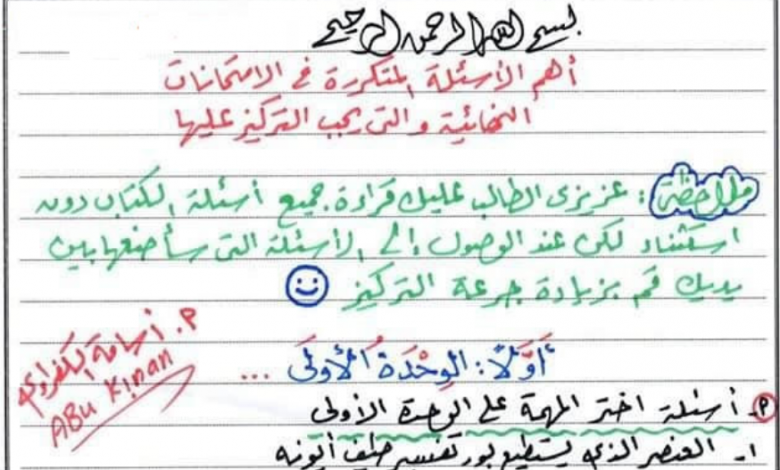 بسم الله الرحمن الرحيم
أهم الأسئلة المتكررة في الامتحانات
النهائية والتي يجب التركيز عليها
ملاحظة: عزيزي الطالب عليك قراءة جميع أسئلة الكتاب دون
استثناء لكن عند الوصول إلى الأسئلة التي سأضعها بين
يديك قم بزيادة جرعة التركيز
م. أسامة الكفراوي
ABU Kinan
أَوَّلاً: الوِحْدَةُ الأولَى ...
م- أسئلة اختر المهمة على الوحدة الأولى
١- العنصر الذي يستطيع بور تفسير طيف أيونه